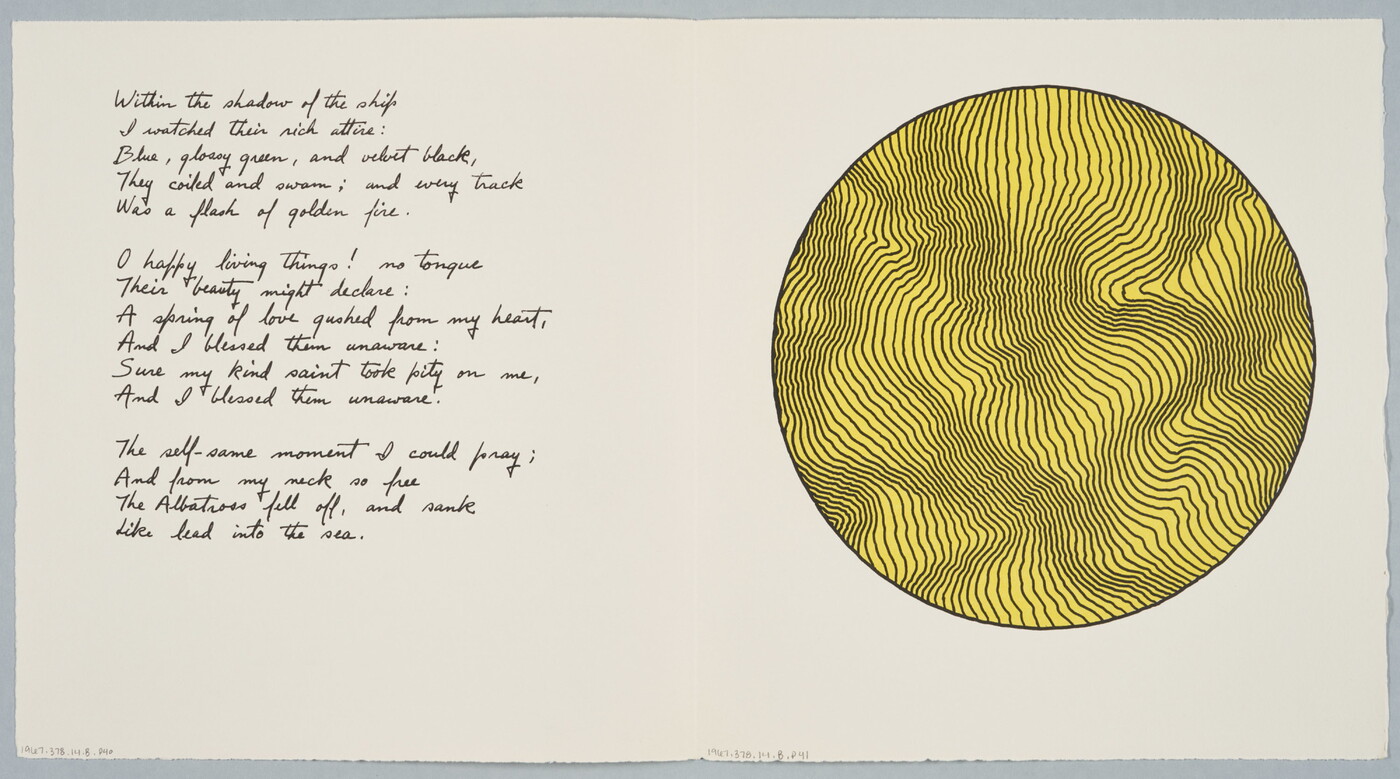 Within the shadow of the ship
I watched their rich attire:
Blue, glossy green, and velvet black,
They coiled and swam; and every track
Was a flash of golden fire.
O happy living things! no tongue
Their beauty might declare:
A spring of love gushed from my heart,
And I blessed them unaware:
Sure my kind saint took pity on me,
And I blessed them unaware.
The self-same moment I could pray;
And from my neck so free
The Albatross fell off, and sank
Like lead into the sea.
1967.378.14.B.P40
1967.378.14.B.P41